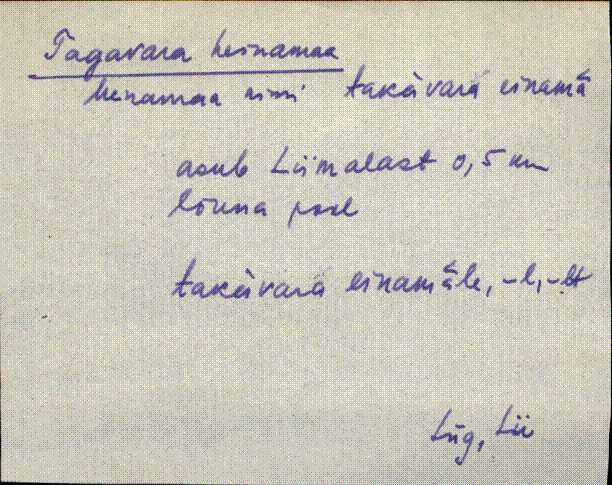 Tagavara heinamaa
heinamaa nimi takàvara einamā
asub Liimalast 0,5 km
lõuna pool
takàvara einamāle, -l, -lt
Lüg, Lii